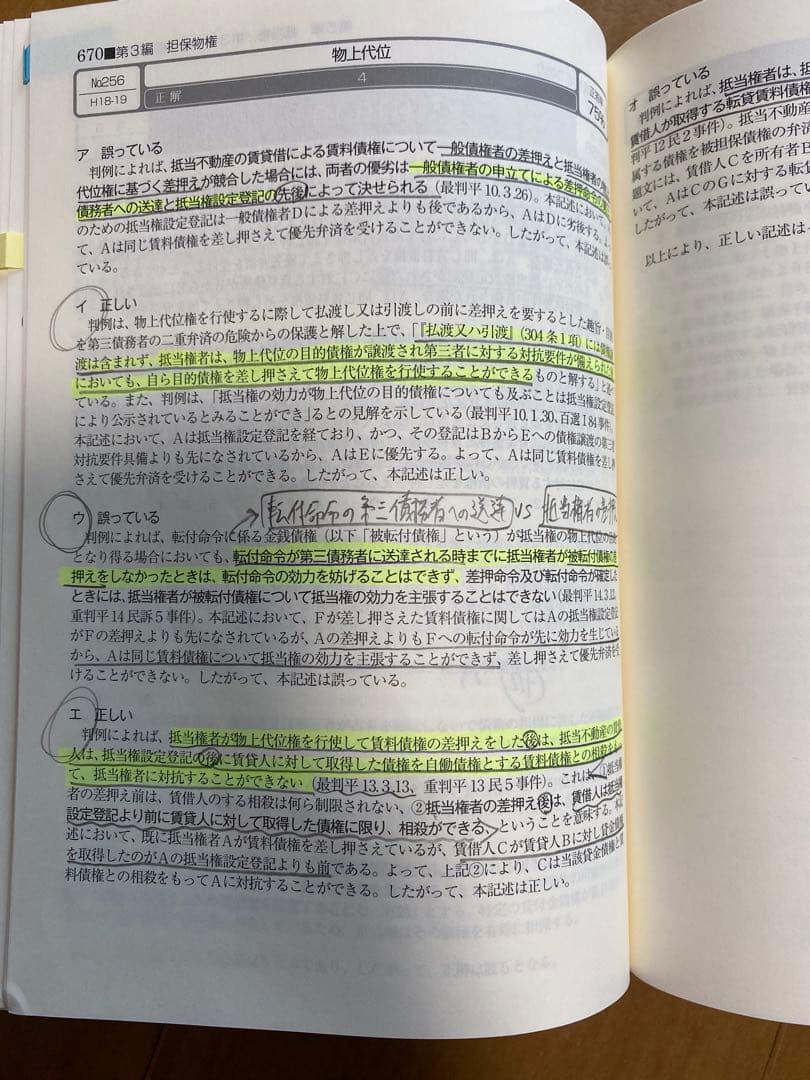 670■第3編 担保物権
No256
H18-19
物上代位
正解
4
75%
ア 誤っている
判例によれば、抵当不動産の賃貸借による賃料債権について一般債権者の差押えと抵当権者の
代位権に基づく差押えが競合した場合には、両者の優劣は一般債権者の申立てによる差押命令の
債務者への送達と抵当権設定登記の先後によって決せられる(最判平10.3.26)。本記述において
のための抵当権設定登記は一般債権者Dによる差押えよりも後であるから、AはDに劣後する。よっ
て、Aは同じ賃料債権を差し押さえて優先弁済を受けることができない。したがって、本記述は誤っ
ている。
イ 正しい
判例は、物上代位権を行使するに際して払渡し又は引渡しの前に差押えを要するとした趣旨・目
を第三債務者の二重弁済の危険からの保護と解した上で、「『払渡又ハ引渡』(304条1項)には債権
渡は含まれず、抵当権者は、物上代位の目的債権が譲渡され第三者に対する対抗要件が備えられた
においても、自ら目的債権を差し押さえて物上代位権を行使することができるものと解する」と
ている。また、判例は、「抵当権の効力が物上代位の目的債権についても及ぶことは抵当権設定登
により公示されているとみることができ」るとの見解を示している(最判平10.1.30、百選Ⅰ84事件)。
本記述において、Aは抵当権設定登記を経ており、かつ、その登記はBからEへの債権譲渡の第三
対抗要件具備よりも先になされているから、AはEに優先する。よって、Aは同じ賃料債権を差し
さえて優先弁済を受けることができる。したがって、本記述は正しい。
→転付命令の第三債務者への送達 VS 抵当権者の差押
ウ 誤っている
判例によれば、転付命令に係る金銭債権(以下「被転付債権」という)が抵当権の物上代位の
となり得る場合においても、転付命令が第三債務者に送達される時までに抵当権者が被転付債権の差
押えをしなかったときは、転付命令の効力を妨げることはできず、差押命令及び転付命令が確定した
ときには、抵当権者が被転付債権について抵当権の効力を主張することはできない(最判平14.3.12、
重判平14民訴5事件)。本記述において、Fが差し押さえた賃料債権に関してはAの抵当権設定登記
がFの差押えよりも先になされているが、Aの差押えよりもFへの転付命令が先に効力を生じている
から、Aは同じ賃料債権について抵当権の効力を主張することができず、差し押さえて優先弁済を受
けることができない。したがって、本記述は誤っている。
エ 正しい
判例によれば、抵当権者が物上代位権を行使して賃料債権の差押えをした後は、抵当不動産の賃借
人は、抵当権設定登記の後に賃貸人に対して取得した債権を自働債権とする賃料債権との相殺をもっ
て、抵当権者に対抗することができない(最判平13.3.13、重判平13民5事件)。これは、①抵当権
者の差押え前は、賃借人のする相殺は何ら制限されない、②抵当権者の差押え後は、賃借人は抵当権
設定登記より前に賃貸人に対して取得した債権に限り、相殺ができる、ということを意味する。本記
述において、既に抵当権者Aが賃料債権を差し押さえているが、賃借人Cが賃貸人Bに対し貸金債権
を取得したのがAの抵当権設定登記よりも前である。よって、上記②により、Cは当該貸金債権と賃
料債権との相殺をもってAに対抗することができる。したがって、本記述は正しい。
オ 誤っている
判例によれば、抵当権者は、抵
賃借人が取得する転貸賃料債権
判平12民2事件)。抵当不動
属する債権を被担保債権の弁済
題文には、賃借人Cを所有者B
いて、AはCのGに対する転
したがって、本記述は誤ってい
以上により、正しい記述はイ